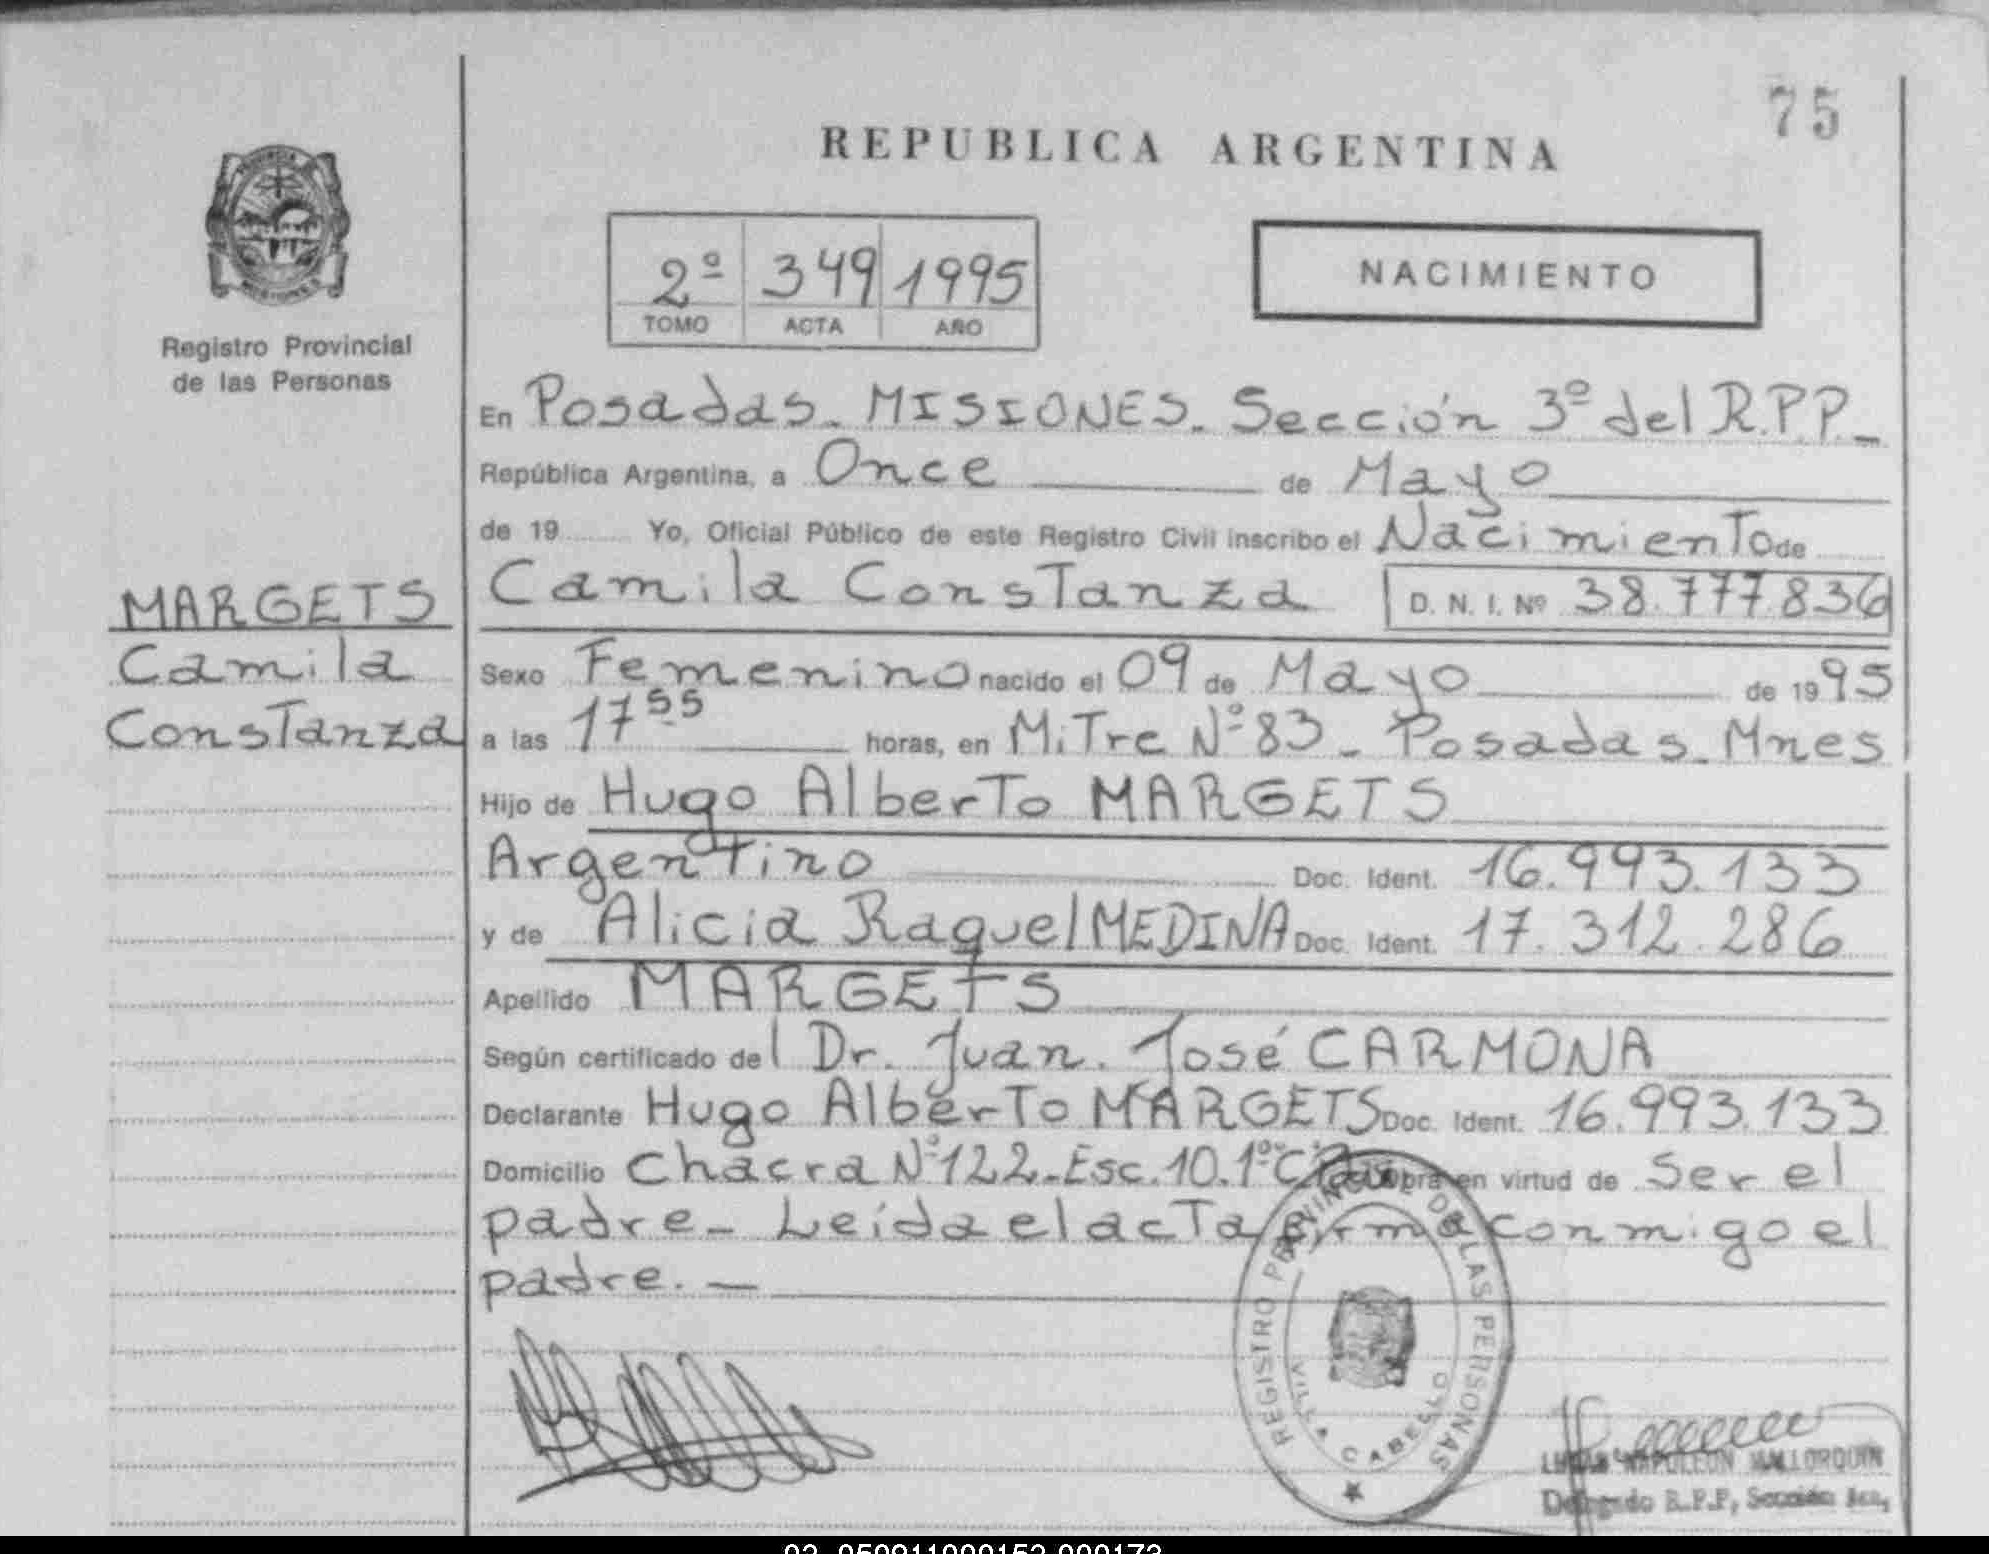 75
REPUBLICA ARGENTINA
2º 349 1995
TOMO ACTA AÑO
NACIMIENTO
Registro Provincial
de las Personas
En Posadas. MISIONES. Sección 3º del R.P.P.-
República Argentina, a Once de Mayo
de 19 Yo, Oficial Público de este Registro Civil inscribo el Nacimiento de
MARGETS
Camila
Constanza
Camila Constanza D. N. I. Nº 38.777.836
Sexo Femenino nacido el 09 de Mayo de 1995
a las 17 55 horas, en Mitre Nº 83 - Posadas. Mnes
Hijo de Hugo Alberto MARGETS
Argentino Doc. Ident. 16.993.133
y de Alicia Raquel MEDINA Doc. Ident. 17.312.286
Apellido MARGETS
Según certificado del Dr. Juan. José CARMONA
Declarante Hugo Alberto MARGETS Doc. Ident. 16.993.133
Domicilio Chacra Nº 122-Esc. 10.1º en virtud de Ser el
padre- Leída el acta firma conmigo el
padre. -
REGISTRO PROVINCIAL DE LAS PERSONAS
VILLA CABELLO
NAPOLEON MALLORQUIN
Delegado R.P.P, Sección 3ra,